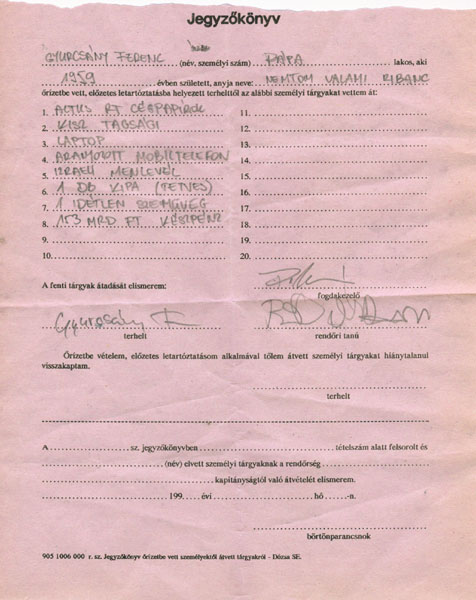 Jegyzőkönyv
GYURCSÁNY FERENC (név, személyi szám) PÁPA lakos, aki
1959 évben született, anyja neve: NEMTOM VALAMI RIBANC
őrizetbe vett, előzetes letartóztatásba helyezett terhelttől az alábbi személyi tárgyakat vettem át:
1. ALTUS RT CÉGPAPÍROK 11.
2. KISZ TAGSÁGI 12.
3. LAPTOP 13.
4. ARANYOZOTT MOBILTELEFON 14.
5. IZRAELI MENLEVÉL 15.
6. 1 DB KIPA (TETVES) 16.
7. 1 IDÉTLEN SZEMÜVEG 17.
8. 153 MRD FT KÉSZPÉNZ 18.
9. 19.
10. 20.
A fenti tárgyak átadását elismerem:
fogdakezelő
Gyurcsány F
terhelt rendőri tanú
Őrizetbe vételem, előzetes letartóztatásom alkalmával tőlem átvett személyi tárgyakat hiánytalanul
visszakaptam.
terhelt
A sz. jegyzőkönyvben tételszám alatt felsorolt és
(név) elvett személyi tárgyaknak a rendőrség
kapitányságtól való átvételét elismerem.
199 évi hó -n.
börtönparancsnok
905 1006 000 r. sz. Jegyzőkönyv őrizetbe vett személyektől átvett tárgyakról - Dózsa SE.